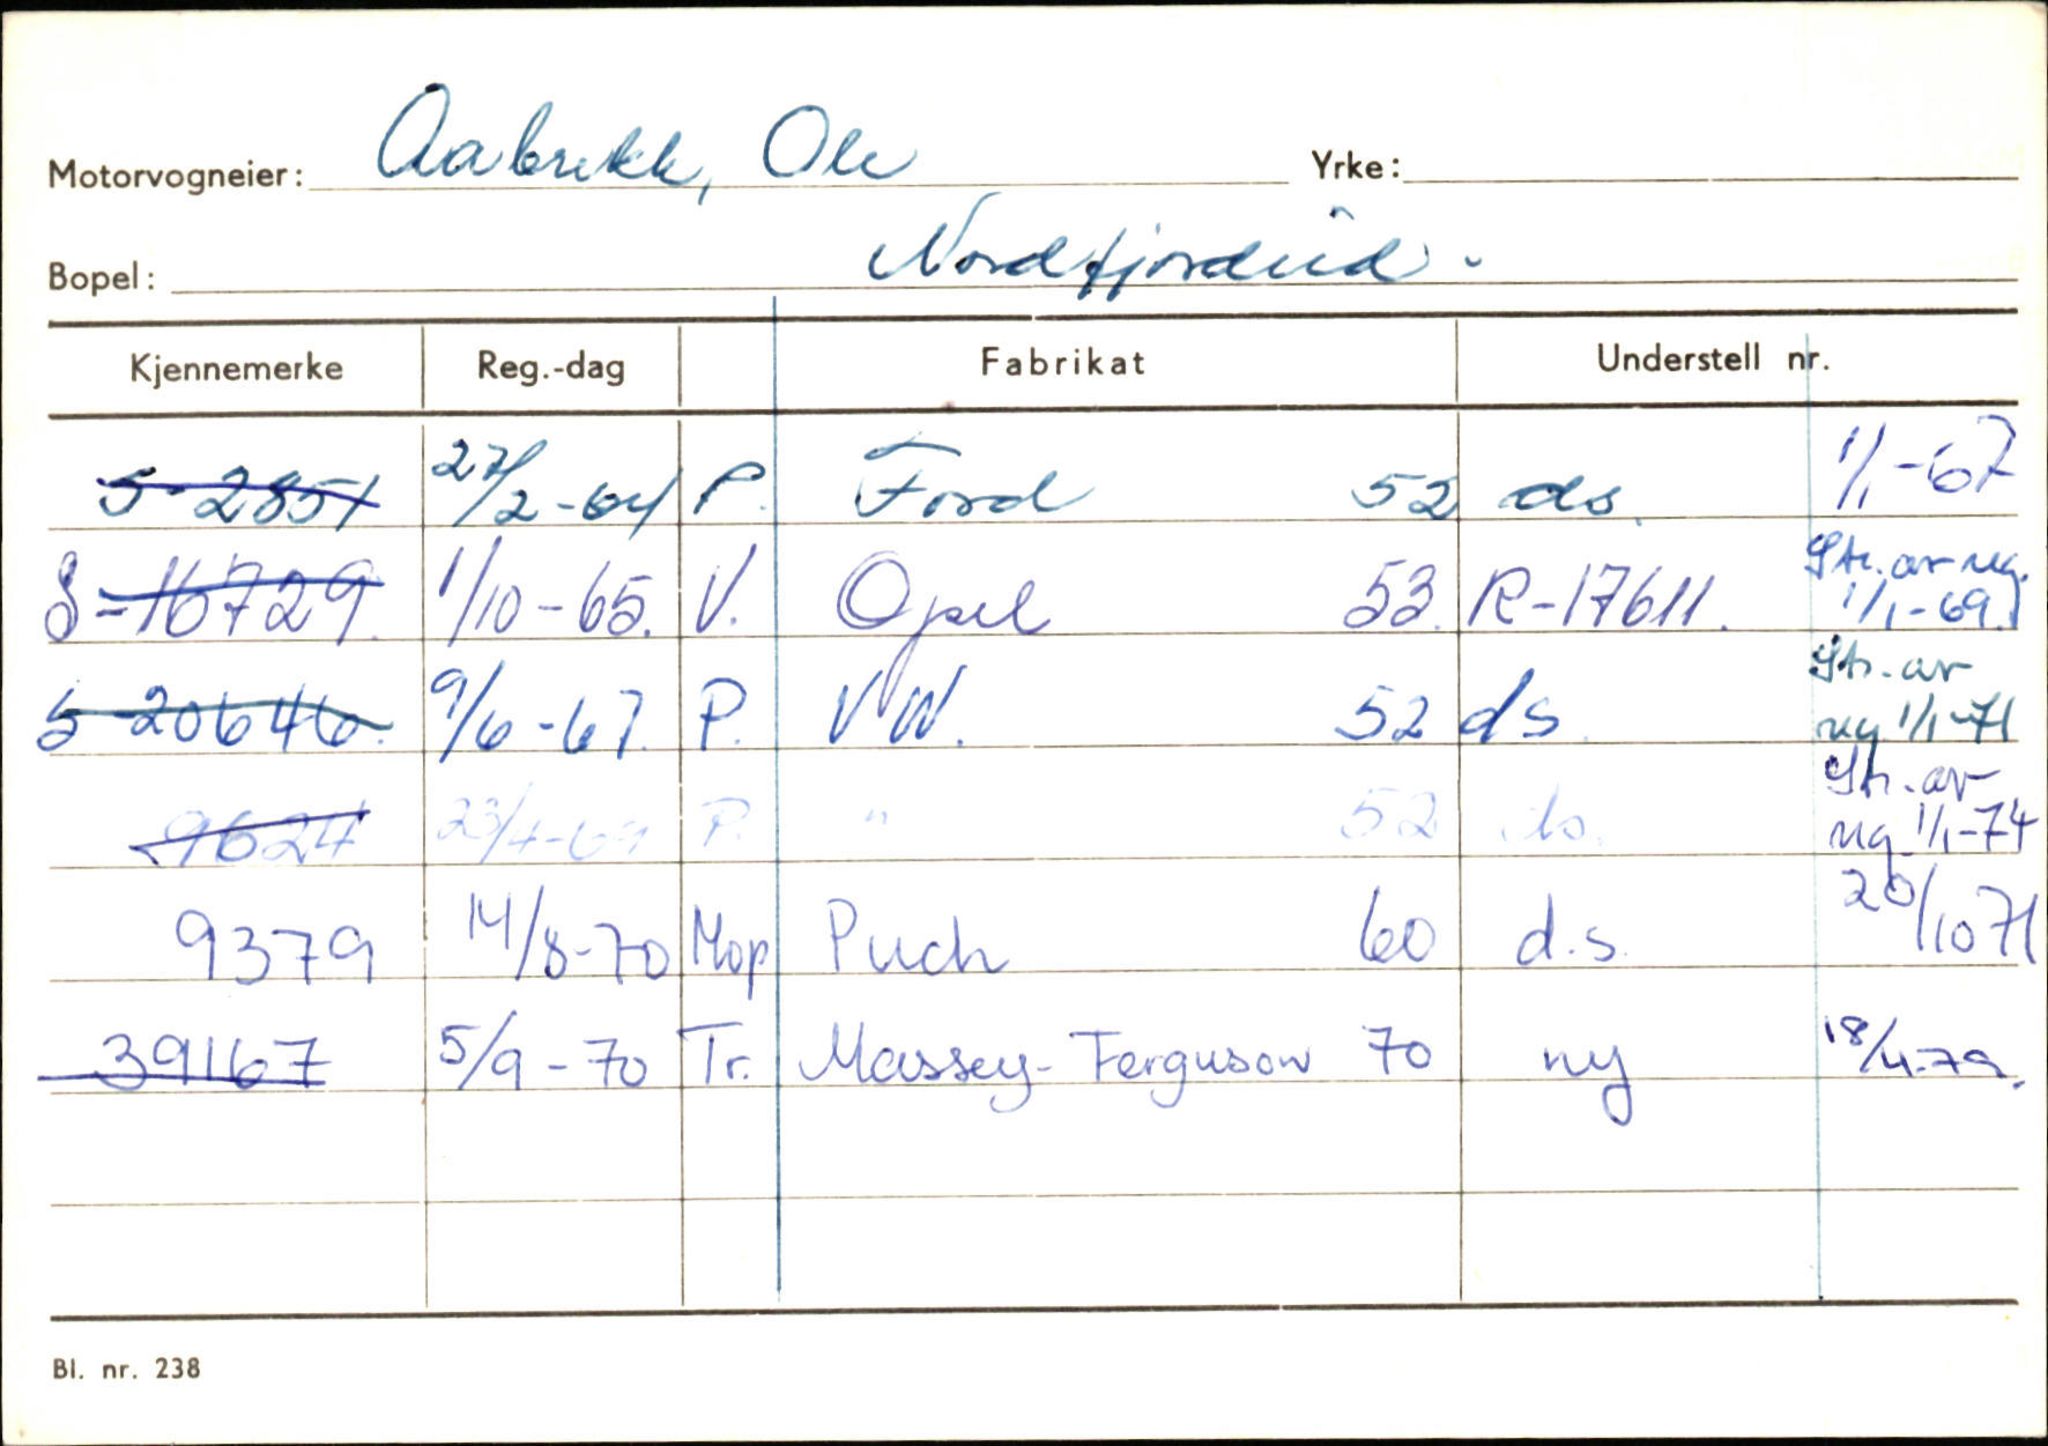 Motorvogneier: Aabrekk, Ole Yrke:
Bopel: Nordfjordeid.
Kjennemerke Reg.-dag Fabrikat Understell nr.
S-2851 27/2-64 P. Ford 52 ds. 1/1-67
S-16729. 1/10-65. V. Opel 53. R-17611. Str. av reg. 1/1-69.
S-20646. 9/6-67. P. VW. 52 ds. Str. av reg 1/1-71
9624 23/4-69 P. " 52 ds. Str. av reg 1/1-74
9379 14/8-70 Mop Puch 60 d.s. 20/10 71
39167 5/9-70 Tr. Massey-Ferguson 70 ny 18/4-79.
Bl. nr. 238